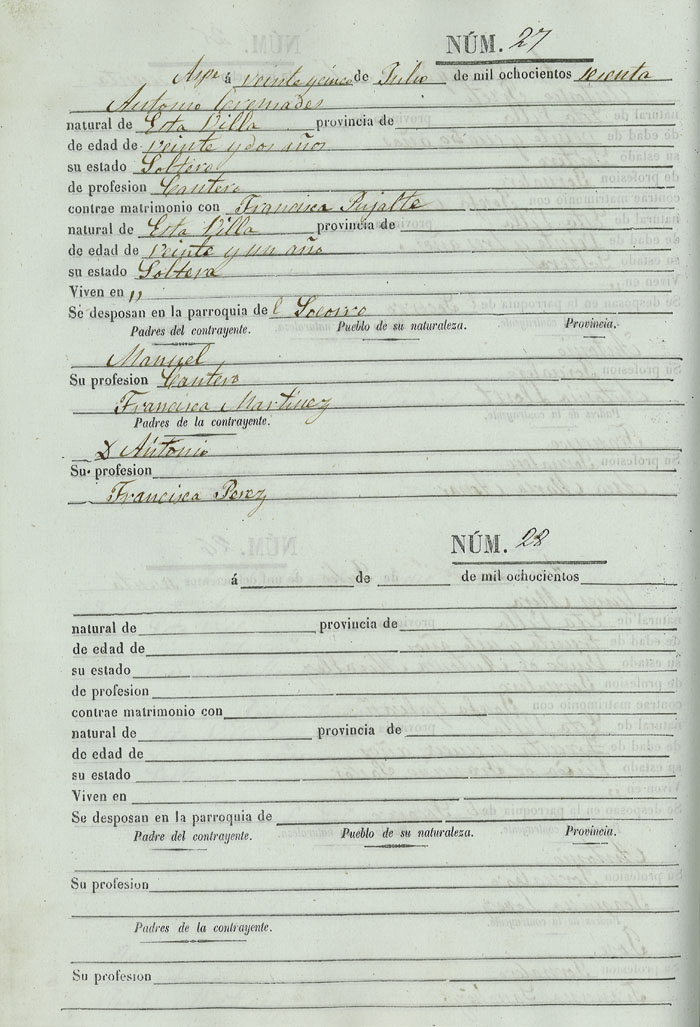 NÚM. 27
Aspe á veinte y cinco de Julio de mil ochocientos sesenta
Antonio Cremades
natural de Esta Villa provincia de
de edad de veinte y dos años
su estado Soltero
de profesion Cantero
contrae matrimonio con Francisca Pujalte
natural de Esta Villa provincia de
de edad de veinte y un año
su estado Soltera
Viven en "
Se desposan en la parroquia del Socorro
Padres del contrayente. Pueblo de su naturaleza. Provincia.
Manuel
Su profesion Cantero
Francisca Martinez
Padres de la contrayente.
D Antonio
Su profesion
Francisca Perez
NÚM. 28
á de de mil ochocientos
natural de provincia de
de edad de
su estado
de profesion
contrae matrimonio con
natural de provincia de
de edad de
su estado
Viven en
Se desposan en la parroquia de
Padre del contrayente. Pueblo de su naturaleza. Provincia.
Su profesion
Padres de la contrayente.
Su profesion